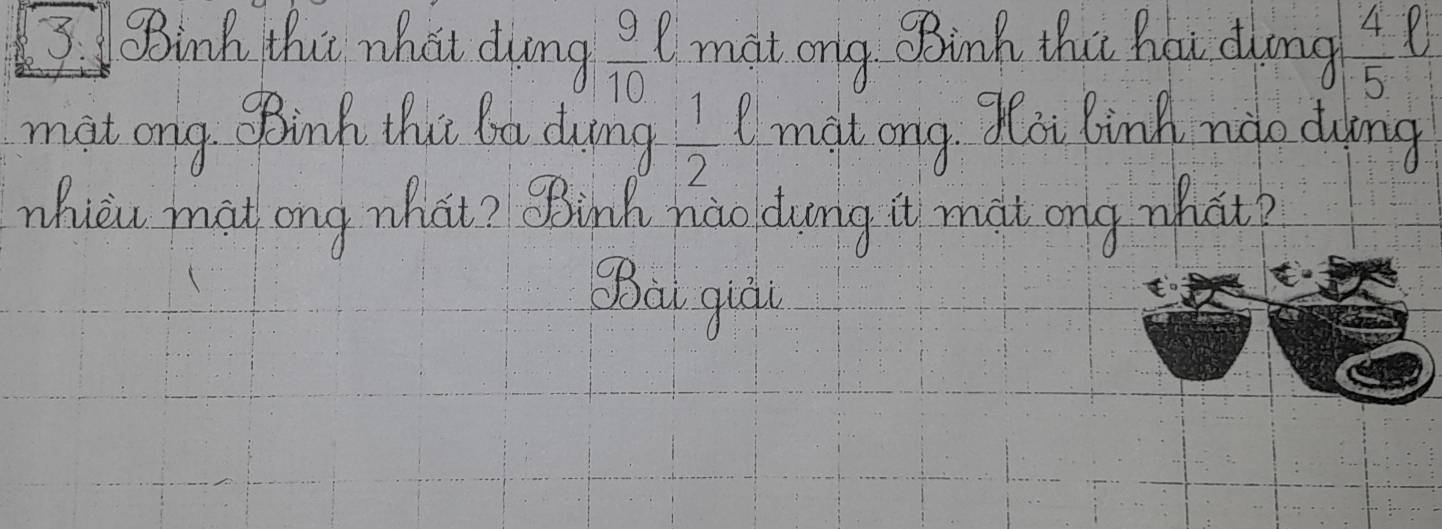 3. Bình thứ nhất đựng 9/10 l mật ong. Bình thứ hai đựng 4/5 l
mật ong. Bình thứ ba đựng 1/2 l mật ong. Hỏi bình nào đựng
nhiều mật ong nhất? Bình nào đựng ít mật ong nhất?
Bài giải